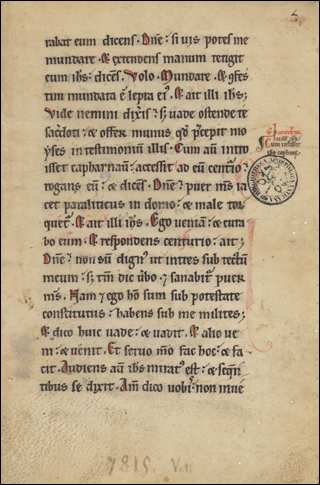 2
rabat eum dicens. Dñe: si uis potes me
mundare. & extendens manum tetigit
eum ihs: dicẽs. Volo. Mundare. & cõfes
tim mundata ẽ lepra ei9. & ait illi ihs;
Vide nemini dixis: sȝ uade ostende te
sacdoti: & offer munus qđ p̃cepit mo
yses in testimoniũ illis. Cum aũ intro
isset capharnaũ: accessit ad eũ cent᷑io
rogans eũ: & dicẽs. Dñe? puer m̃s ia
cet paraliticus in domo: & male tor
quet᷑. & ait illi ihs. Ego ueniã: & cura
bo eum. & respondens centurio: ait;
Dñe? non sũ dign9 ut intres sub tectũ
meum: sȝ tm̃ dic ũbo. & sanabit᷑ puer
m̃s. Nam & ego hõ sum sub potestate
constitutus: habens sub me milites;
& dico huic uade: & uadit. & alio ue
ni: & uenit. Et seruo mõ fac hoc: & fa
cit. Audiens aũ ihs mirat9 est: & seq̃n
tibus se dixit. Am̃ dico uob᷑: non inue
7815 V.1.